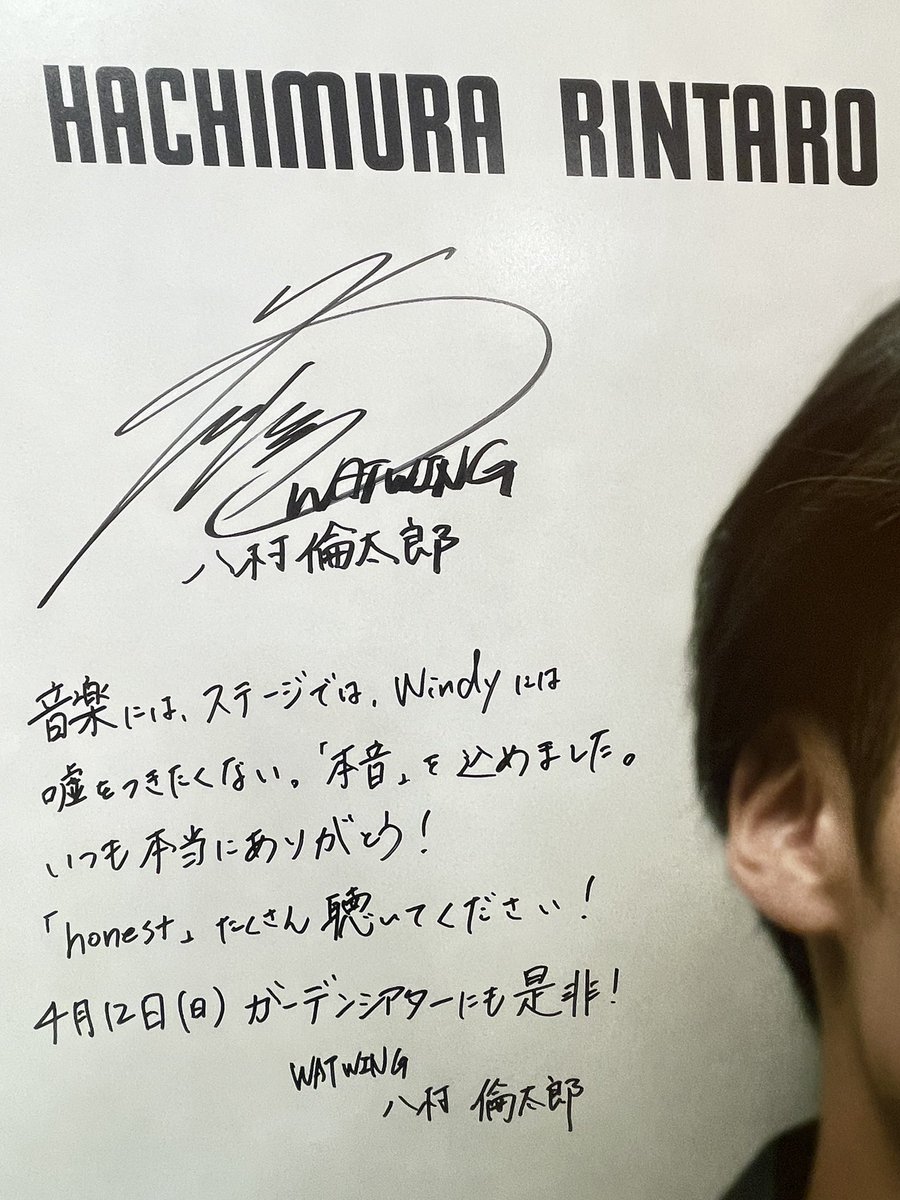 HACHIMURA RINTARO
WATWING
八村倫太郎
音楽には、ステージでは、Windyには
嘘をつきたくない。「本音」を込めました。
いつも本当にありがとう!
「honest」たくさん聴いてください!
4月12日(日) ガーデンシアターにも是非!
WATWING
八村 倫太郎